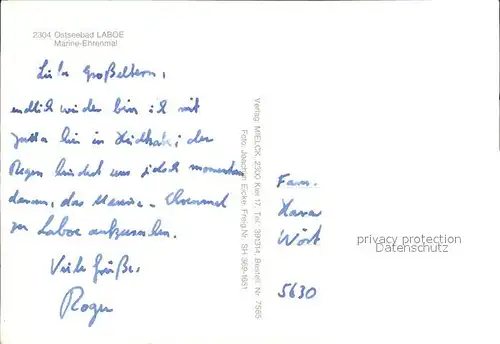 2304 Ostseebad LABOE
Marine-Ehrenmal
Liebe Großeltern,
endlich wieder bin ich mit
Jutta hier in ; der
Regen hindert uns jedoch momentan
daran, das Marine-Ehrenmal
zu Laboe anzusehen.
Viele Grüße,
Roger
Verlag MIELCK, 2300 Kiel 17, Tel. 391314, Bestell. Nr. 7565
Foto: Joachim Eicke, Freig. Nr. SH 369-1681
Fam.
5630
privacy protection
Datenschutz